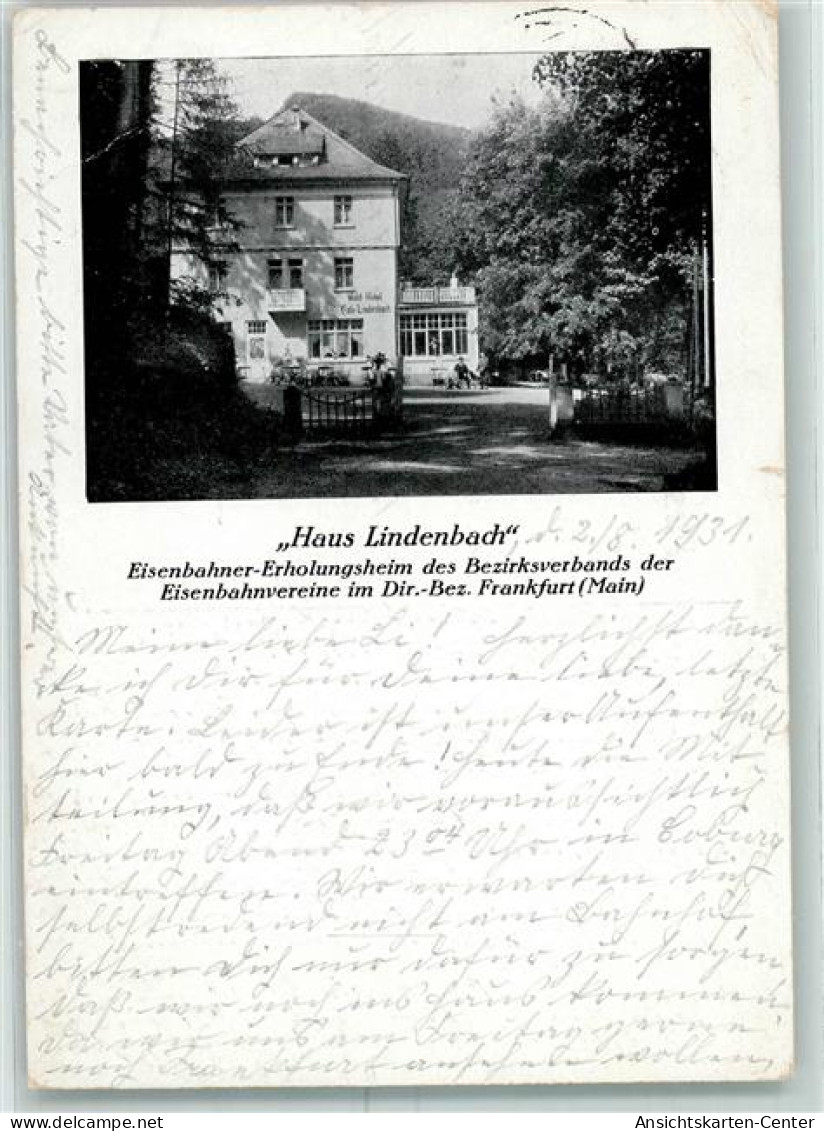 Wald-Hotel
Cafe Lindenbach
„Haus Lindenbach“, d. 2./8. 1931.
Eisenbahner-Erholungsheim des Bezirksverbands der
Eisenbahnvereine im Dir.-Bez. Frankfurt (Main)
Meine liebe Li! Herzlichst dan-
ke ich Dir für Deine liebe, letzte
Karte. Leider ist unser Aufenthalt
hier bald zu Ende! Heute die Mit-
teilung, daß wir voraussichtlich
Freitag Abend 23 04 Uhr in Coburg
eintreffen. Wir erwarten Dich
selbstredend nicht am Bahnhof,
bitten Dich nur dafür zu sorgen,
daß wir noch ins Haus kommen.
Da wir uns am Freitag gerne
noch Frankfurt ansehen wollen,
bitte
Ansichtskarten-Center